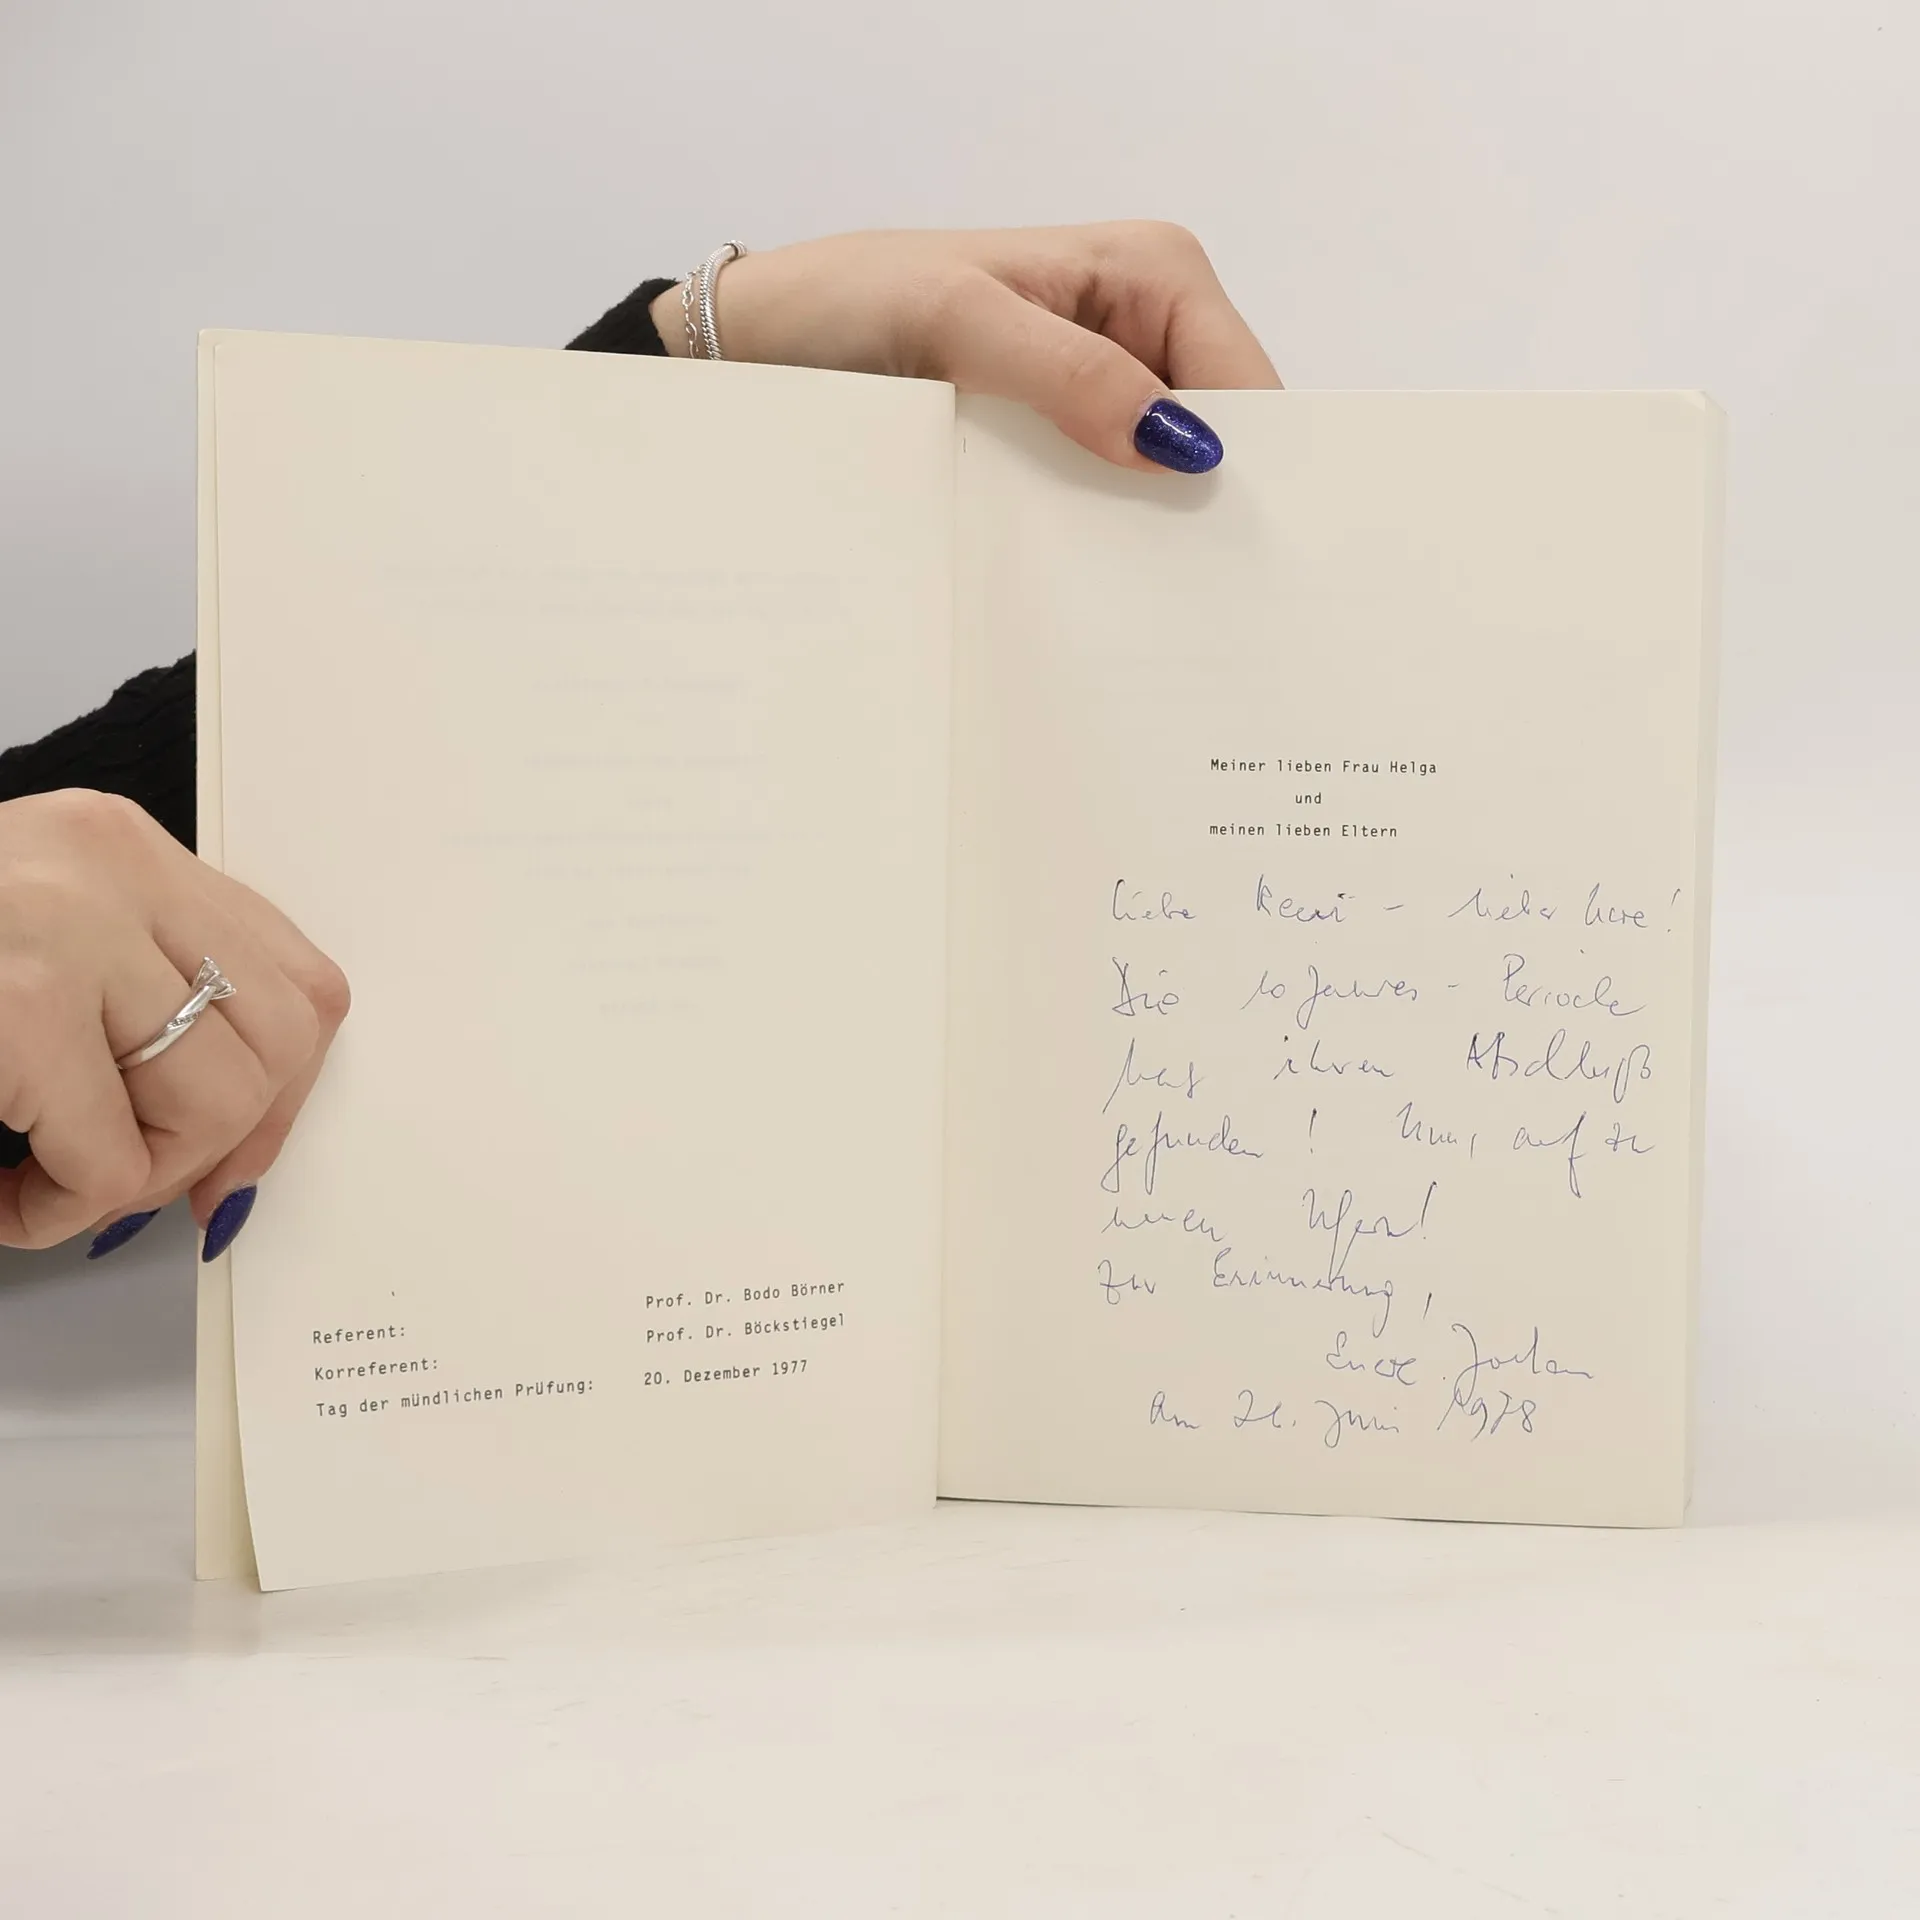 Referent:
Prof. Dr. Bodo Börner
Korreferent:
Prof. Dr. Böckstiegel
Tag der mündlichen Prüfung:
20. Dezember 1977
Meiner lieben Frau Helga
und
meinen lieben Eltern
Liebe - lieber !
Die 10 Jahres - Periode
hat ihren Abschluß
gefunden! Nun, auf zu
neuen Ufern!
Zur Erinnerung,
Am 26. Juni 1978